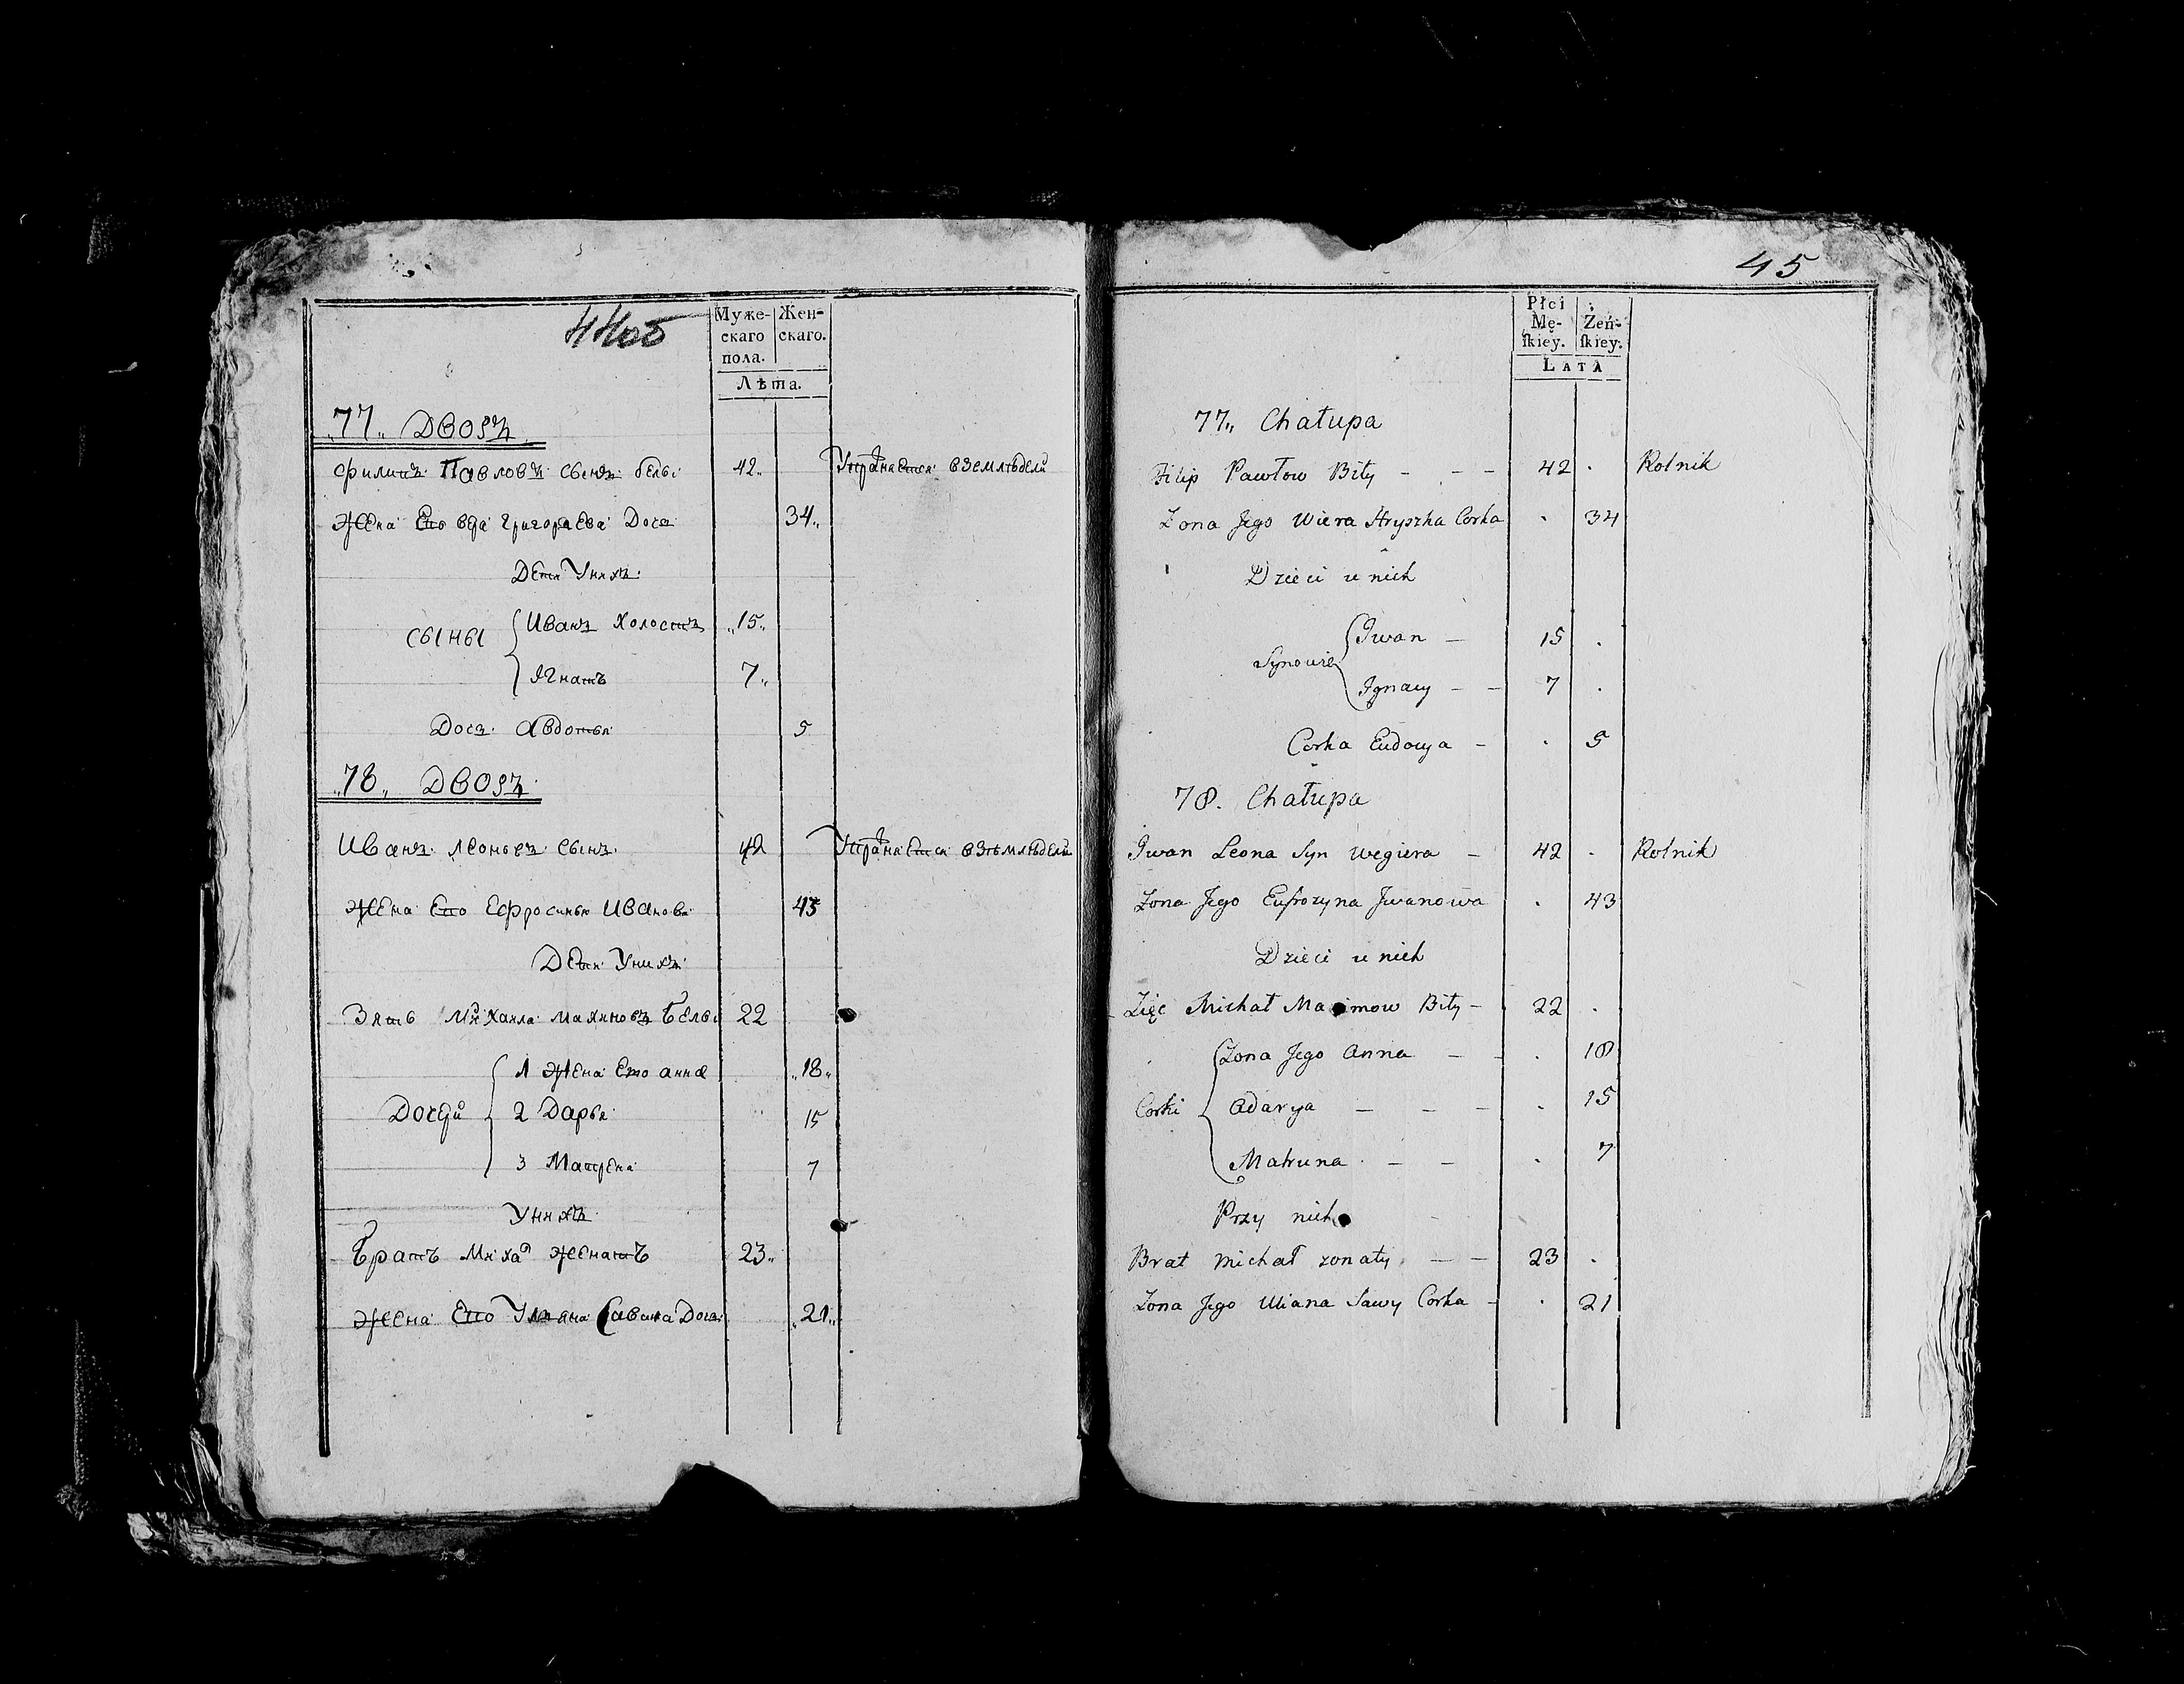 44об
Муже-
скаго
пола.
Жен-
скаго.
Лѣта.
„77„ Дворъ
Филипъ Павловъ сынъ Белы 42„ Упражняется вземлѣдели
Жена Его вера Григораева Дочъ 34„
Дети Унихъ
сыны
Иванъ холостъ „15„
Игнатъ 7„
Дочъ Авдотья 5
„78„ Дворъ
Иванъ Леоновъ сынъ 42 Упражняется вземлѣдели
Жена Его Ефросинья Иванова 43
Дети Унихъ
Зять Михаила Махимовъ Белы 22
Дочери
1 Жена Его анна „18„
2 Дарья 15
3 Матрена 7
Унихъ
Братъ Михай женатъ 23„
Жена Его Ульяна Савина Дочъ „21„
45
Płci
Mę-
ſkiey.
Żeń-
ſkiey.
LATA
77„ Chałupa
Filip Pawłow Biły - - - 42 . Rolnik
Zona Jego Wiera Hryszka Corka . 34
Dzieci u nich
Synowie
Iwan - 15 .
Ignacy - - 7 .
Corka Eudocya - . 5
78. Chałupa
Iwan Leona Syn Wegiera - 42 . Rolnik
Zona Jego Eufrozyna Iwanowa . 43
Dzieci u nich
Zięc Michał Maximow Biły - 22 .
Corki
Zona Jego Anna - - . 18
Odarya - - - . 15
Matruna - - . 7
Przy nich
Brat Michał zonaty - - 23 .
Zona Jego Uliana Sawy Corka - . 21